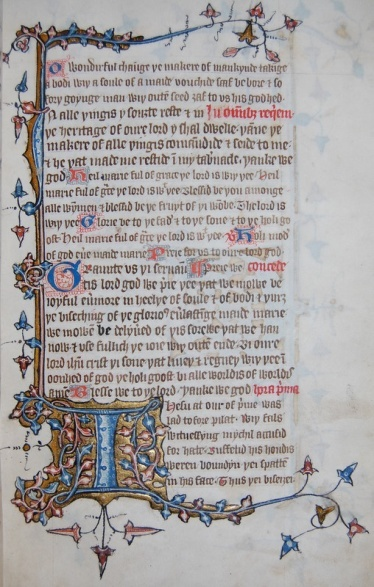 O wondirful chaunge ye makere of mankynde takige
a bodi wiy a soule of a maide vouchide saaf be bore & so
fory goynge man wiy oute seed ȝaf to vs his god hed
In alle yingis y souȝte reste & in In omībȝ reqiem
ye heritage of oure lord y shal dwelle yāne ye
makere of alle yingis comaūdide & seide to me
& he yat made me restide ī my tabnacle yanke we
god Heil marie ful of grace ye lord is wiy yee Heil
marie ful of gᵃce ye lord is wᵗ yee blessid be you amonge
alle wȳmen & blessid be ye fruyt of yi wōbe The lord is
wiy yee Glorie be to ye fad & to ye sone & to ye holi go
ost Heil marie ful of gᵃce ye lord is wᵗ yee Holi mod
of god eūe maide marie Preie for vs to oure lord god
Graunte vs yi seruaūt Preie we concede
tis lord god we p̄ie yee yat we mowe be
ioyful eūmore in heelye of soule & of bodi & yurȝ
ye bisechīg of ye gloriou' euᵉlastīge maide marie
we mowē be delyūed of yis sorewe yat we han
now & vse fullich ye ioie wiy outē ende Bi oure
lord ihū crist yi sone yat lyuey & regney wiy yee ī
oonhed of god ye holi goost bi alle worldis of worldis
amē Blesse we to ye lord yanke we god hora p̄ma
Ihesu at our of p̄me was
lad to fore pilat wiy fals
witnessyng mychil acusid
for hate buffetid his hondis
weren boundyn yei spatte
in his face Thus yei disener